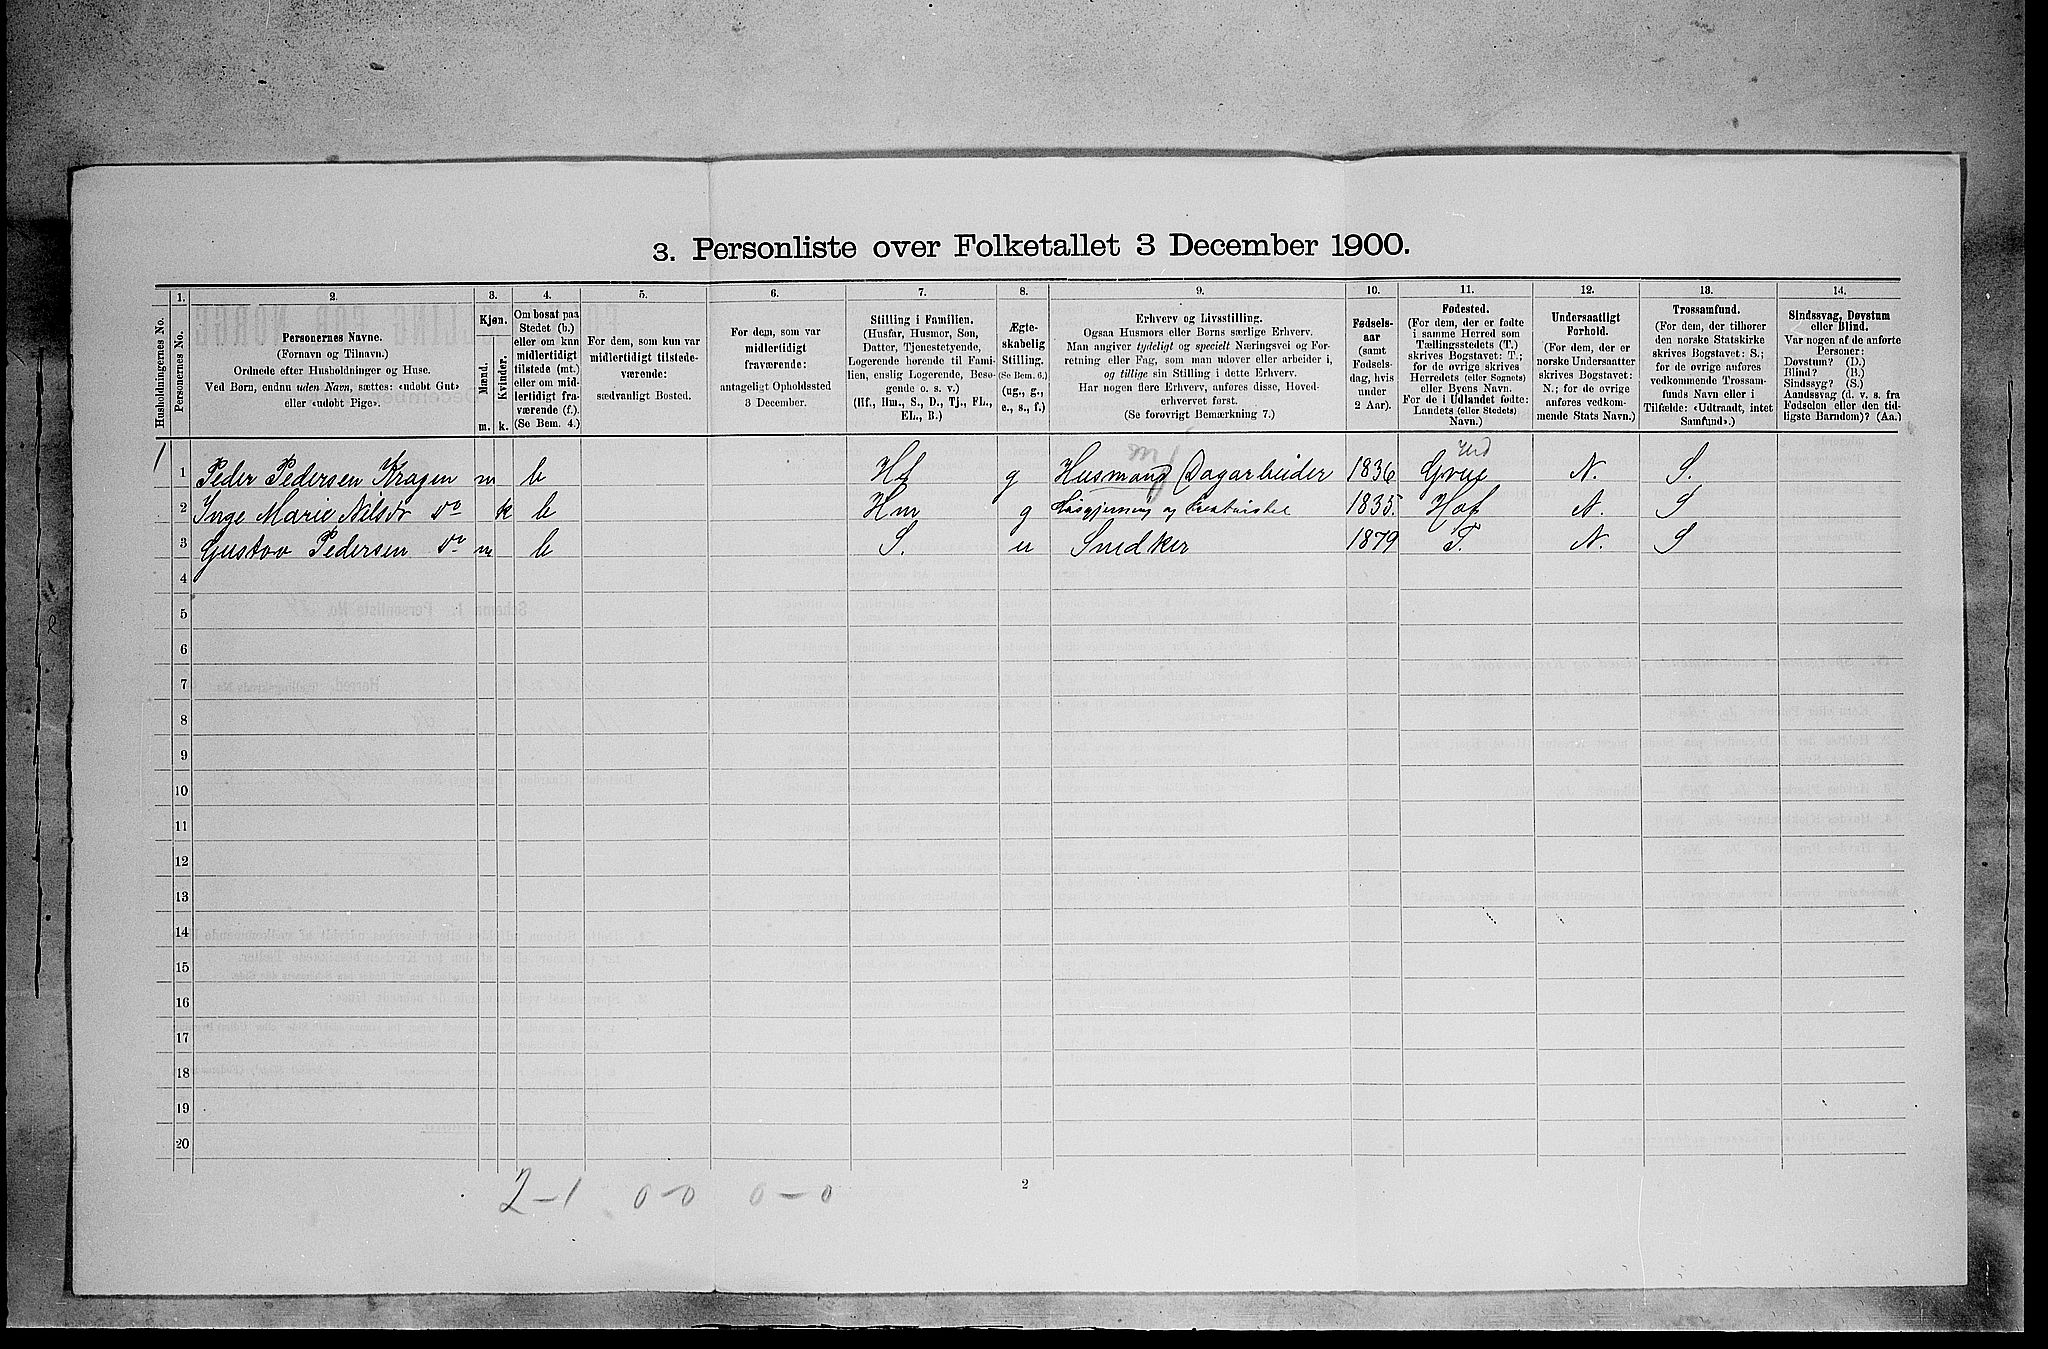 3. Personliste over Folketallet 3 December 1900.
1. 2. 3. 4. 5. 6. 7. 8. 9. 10. 11. 12. 13. 14.
Husholdningernes No.
Personernes No.
Personernes Navne.
(Fornavn og Tilnavn.)
Ordnede efter Husholdninger og Huse.
Ved Børn, endnu uden Navn, sættes: «udobt Gut»
eller «udobt Pige».
Kjøn.
Mænd.
Kvinder.
m. k.
Om bosat paa
Stedet (b.)
eller om kun
midlertidigt
tilstede (mt.)
eller om mid-
lertidigt fra-
værende (f.).
(Se Bem. 4.)
For dem, som kun var
midlertidigt tilstede-
værende:
sædvanligt Bosted.
For dem, som var
midlertidigt
fraværende:
antageligt Opholdssted
3 December.
Stilling i Familien.
(Husfar, Husmor, Søn,
Datter, Tjenestetyende,
Logerende hørende til Fami-
lien, enslig Logerende, Besø-
gende o. s. v.)
(Hf., Hm., S., D., Tj., FL.,
EL., B.)
Ægte-
skabelig
Stilling.
(Se Bem. 6.)
(ug., g.,
e., s., f.)
Erhverv og Livsstilling.
Ogsaa Husmors eller Børns særlige Erhverv.
Man angiver tydeligt og specielt Næringsvei og For-
retning eller Fag, som man udøver eller arbeider i,
og tillige sin Stilling i dette Erhverv.
Har nogen flere Erhverv, anføres disse, Hoved-
erhvervet først.
(Se forøvrigt Bemærkning 7.)
Fødsels-
aar
(samt
Fødsels-
dag, hvis
under
2 Aar).
Fødested.
(For dem, der er fødte
i samme Herred som
Tællingsstedets (T.)
skrives Bogstavet: T.;
for de øvrige skrives
Herredets (eller Sognets)
eller Byens Navn.
For de i Udlandet fødte:
Landets (eller Stedets)
Navn.)
Undersaatligt
Forhold.
(For dem, der er
norske Undersaatter
skrives Bogstavet:
N.; for de øvrige
anføres vedkom-
mende Stats Navn.)
Trossamfund.
(For dem, der tilhører
den norske Statskirke
skrives Bogstavet: S.;
for de øvrige anføres
vedkommende Trossam-
funds Navn eller i
Tilfælde: «Udtraadt, intet
Samfund».)
Sindssvag, Døvstum
eller Blind.
Var nogen af de anførte
Personer:
Døvstum? (D.)
Blind? (B.)
Sindssyg? (S.)
Aandssvag (d. v. s. fra
Fødselen eller den tid-
ligste Barndom)? (Aa.)
1 1 Peder Pedersen Kragen m b Hf g Husmand Dagarbeider 1836 Grue N. S.
2 Inge Marie Nilsdr do k b Hm g Husgjerning og Kreaturstel 1835. Hof N. S
3 Gustav Pedersen do m b S. u Snedker 1879 T. N. S
4
5
6
7
8
9
10
11
12
13
14
15
16
17
18
19
20
2-1 0-0 0-0
2